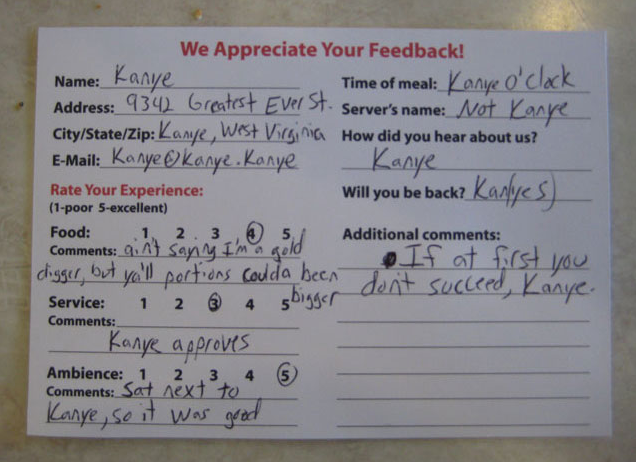 We Appreciate Your Feedback!
Name: Kanye
Address: 9342 Greatest Ever St.
City/State/Zip: Kanye, West Virginia
E-Mail: Kanye@Kanye.Kanye
Rate Your Experience:
(1-poor 5-excellent)
Food: 1 2 3 4 5
Comments: ain't saying I'm a gold
digger, but ya'll portions coulda been
bigger
Service: 1 2 3 4 5
Comments:
Kanye approves
Ambience: 1 2 3 4 5
Comments: Sat next to
Kanye, so it was good
Time of meal: Kanye O'Clock
Server's name: Not Kanye
How did you hear about us?
Kanye
Will you be back? Kan(yes)
Additional comments:
If at first you
don't succeed, Kanye.